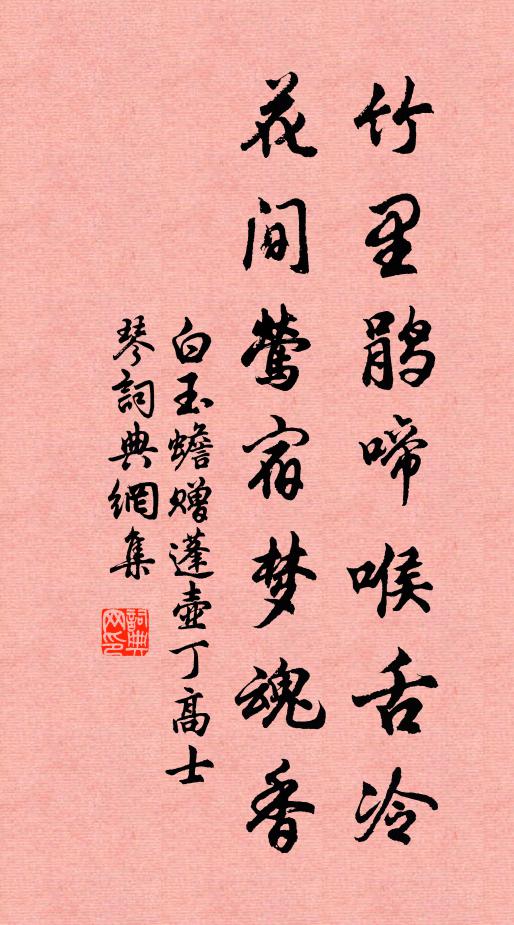 竹里鹃啼喉舌冷
花间莺宿梦魂香
白玉蟾赠蓬壶丁高士
琴詞典網集
詞典
网印